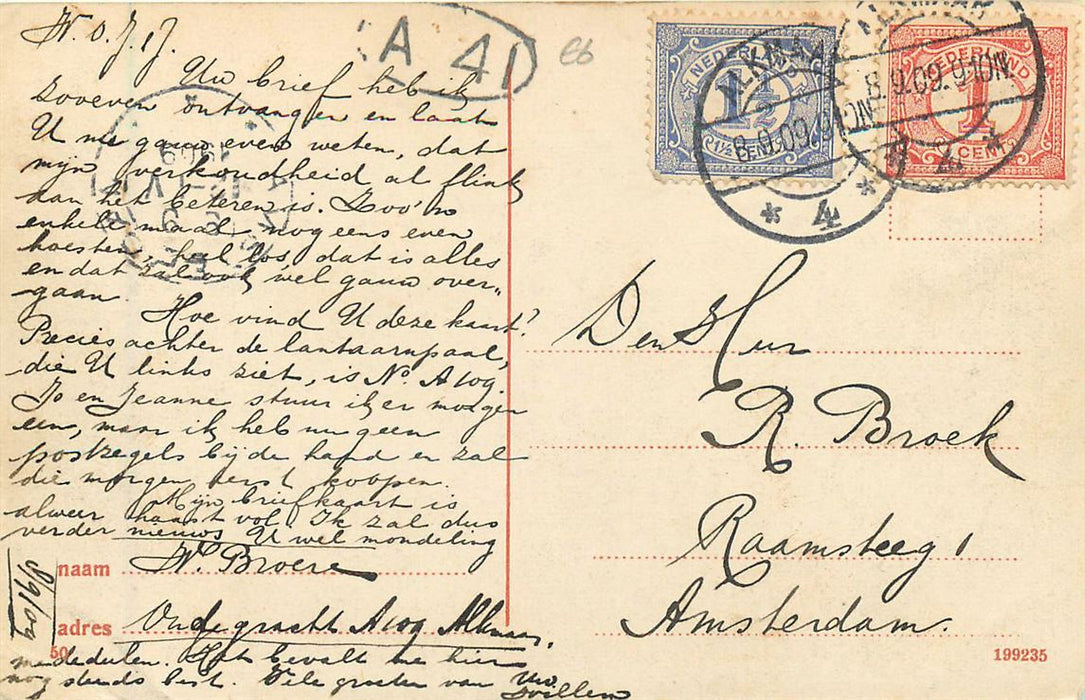 W. o. J. i J.
Uw brief heb ik
zooeven ontvangen en laat
U me gauw even weten, dat
mijn verkoudheid al flink
aan het beteren is. Zoo'n
enkele maal nog eens even
hoesten, heel los, dat is alles
en dat zal ook wel gauw over-
gaan.
Hoe vind U deze kaart?
Precies achter de lantaarnpaal,
die U links ziet, is No. A 109.
Jo en Jeanne stuur ik er morgen
een, maar ik heb nu geen
postzegels bij de hand en zal
die morgen eerst koopen.
Mijn briefkaart is
alweer haast vol. Ik zal dus
verder nieuws U wel mondeling
naam W. Broere
adres Oude gracht A 109 Alkmaar.
mededeelen. Het bevalt me hier
nog steeds best. Vele groeten van Uw
Willem
8/9/09
50
A 41
NEDERLAND
1½
1½ CENT
NEDERLAND
1
CENT
ALKMAAR
8.9.09. 9-10N.
4
ALKMAAR
8.9.09. 9-10N.
1909
Den Heer
R. Broek
Raamsteeg 1
Amsterdam.
199235